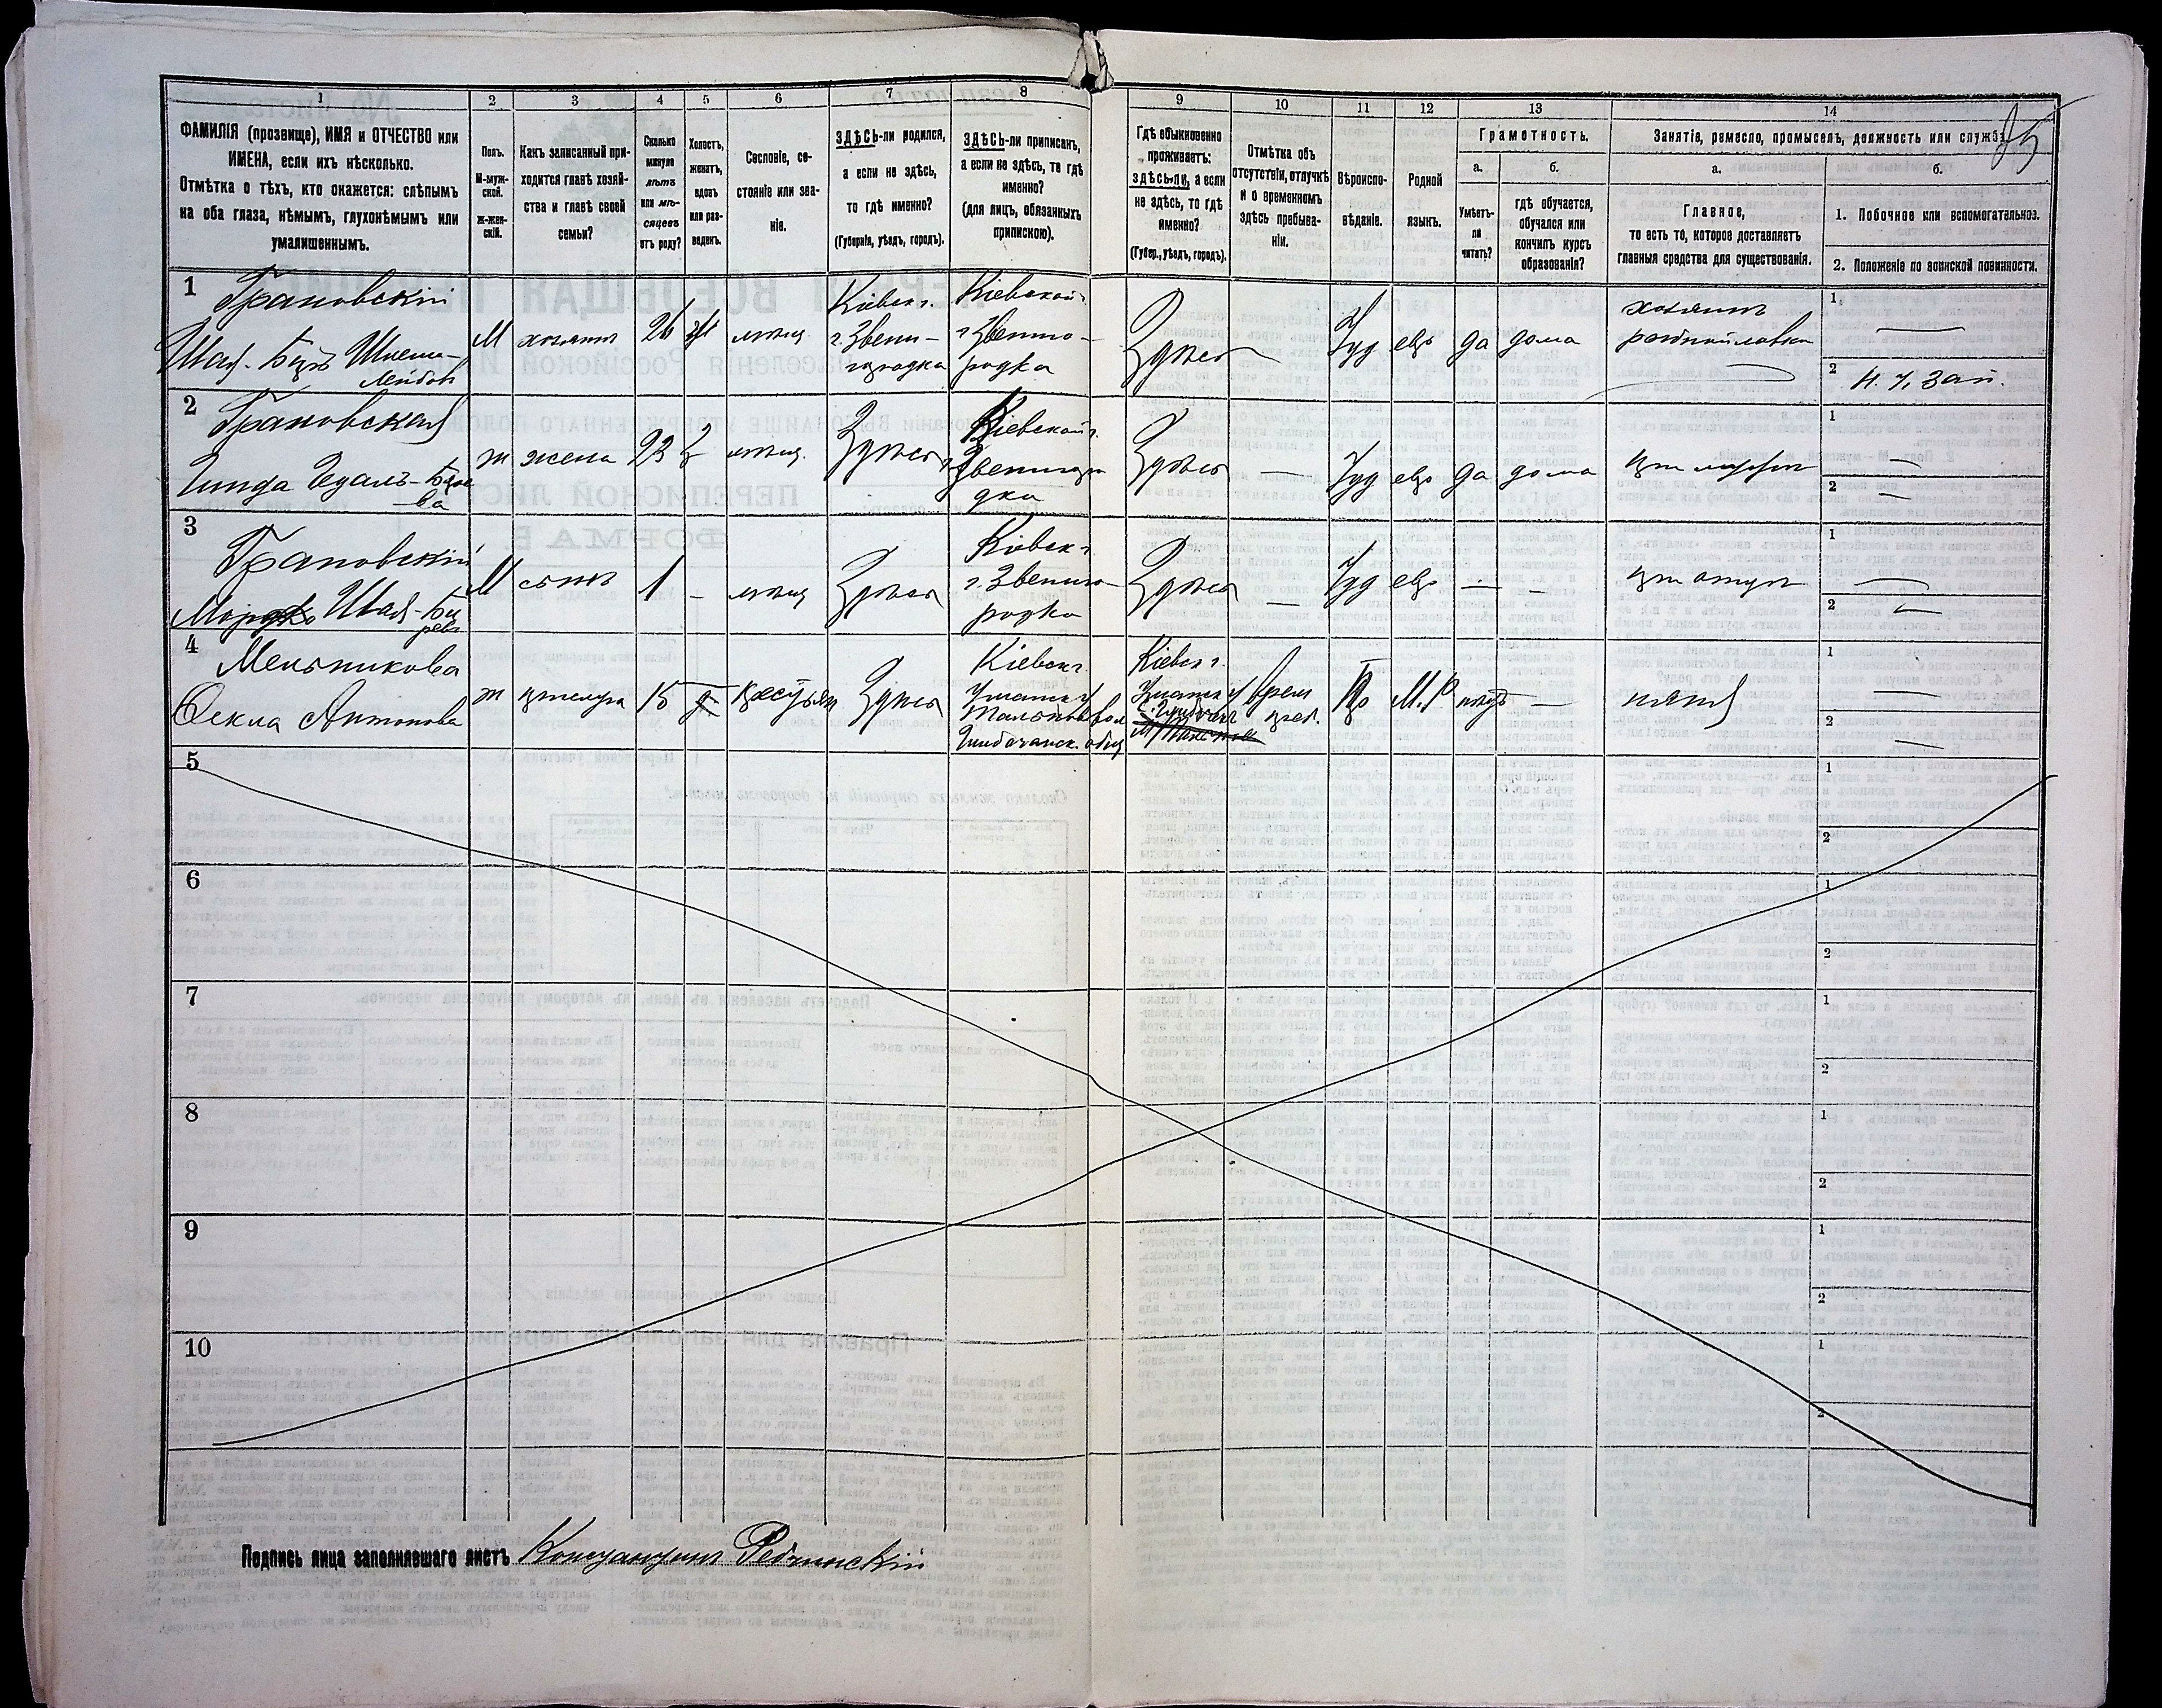 1 2 3 4 5 6 7 8 9 10 11 12 13 14
25
ФАМИЛІЯ (прозвище), ИМЯ и ОТЧЕСТВО или
ИМЕНА, если ихъ нѣсколько.
Отмѣтка о тѣхъ, кто окажется: слѣпымъ
на оба глаза, нѣмымъ, глухонѣмымъ или
умалишеннымъ.
Полъ.
М-муж-
ской.
ж-жен-
скій.
Какъ записанный при-
ходится главѣ хозяй-
ства и главѣ своей
семьи?
Сколько
минуло
лѣтъ
или мѣ-
сяцевъ
отъ роду?
Холостъ,
женатъ,
вдовъ
или раз-
веденъ.
Сословіе, со-
стояніе или зва-
ніе.
ЗДѢСЬ-ли родился,
а если не здѣсь,
то гдѣ именно?
(Губернія, уѣздъ, городъ).
ЗДѢСЬ-ли приписанъ,
а если не здѣсь, то гдѣ
именно?
(для лицъ, обязанныхъ
припискою).
Гдѣ обыкновенно
проживаетъ:
здѣсь-ли, а если
не здѣсь, то гдѣ
именно?
(Губер., уѣздъ, городъ).
Отмѣтка объ
отсутствіи, отлучкѣ
и о временномъ
здѣсь пребыва-
ніи.
Вѣроиспо-
вѣданіе.
Родной
языкъ.
Грамотность.
а.
Умѣетъ-
ли
читать?
б.
гдѣ обучается,
обучался или
кончилъ курсъ
образованія?
Занятіе, ремесло, промыселъ, должность или служба.
а.
Главное,
то есть то, которое доставляетъ
главныя средства для существованія.
б.
1. Побочное или вспомогательное.
2. Положеніе по воинской повинности.
1
Грановскій
Шая-Беръ Шлема-
Лейбов
М хозяинъ 26 ж мѣщ
Кіевск г.
г. Звени-
городка
Кіевской г.
г Звенио-
родка
Здѣсь — Іуд евр да дома
хозяинъ
лавки
1 —
2 Н. Ч. Зап.
2
Грановская
Гинда
ж жена 23 з мѣщ. Здѣсь
Кіевской г.
Звениго
дка
Здѣсь — Іуд евр да дома
1 —
2 —
3
Грановскій
Мордко Шая-Бе
ровъ
М сынъ 1 - мѣщ Здѣсь
Кіевск г
г. Звенио-
родка
Здѣсь — Іуд евр — - при отцѣ
1 —
2 —
4
Мельникова
Фекла Антонова
ж 15 д крестьян Здѣсь
Кіевск г
Уманск у
Тальянк вол
общ
Кіевск г.
Уманск у
врем
преб.
Пр М.Р нѣтъ — няня
1 —
2 —
5 1
2
6 1
2
7 1
2
8 1
2
9 1
2
10 1
2
Подпись лица заполнявшаго листъ Константинъ